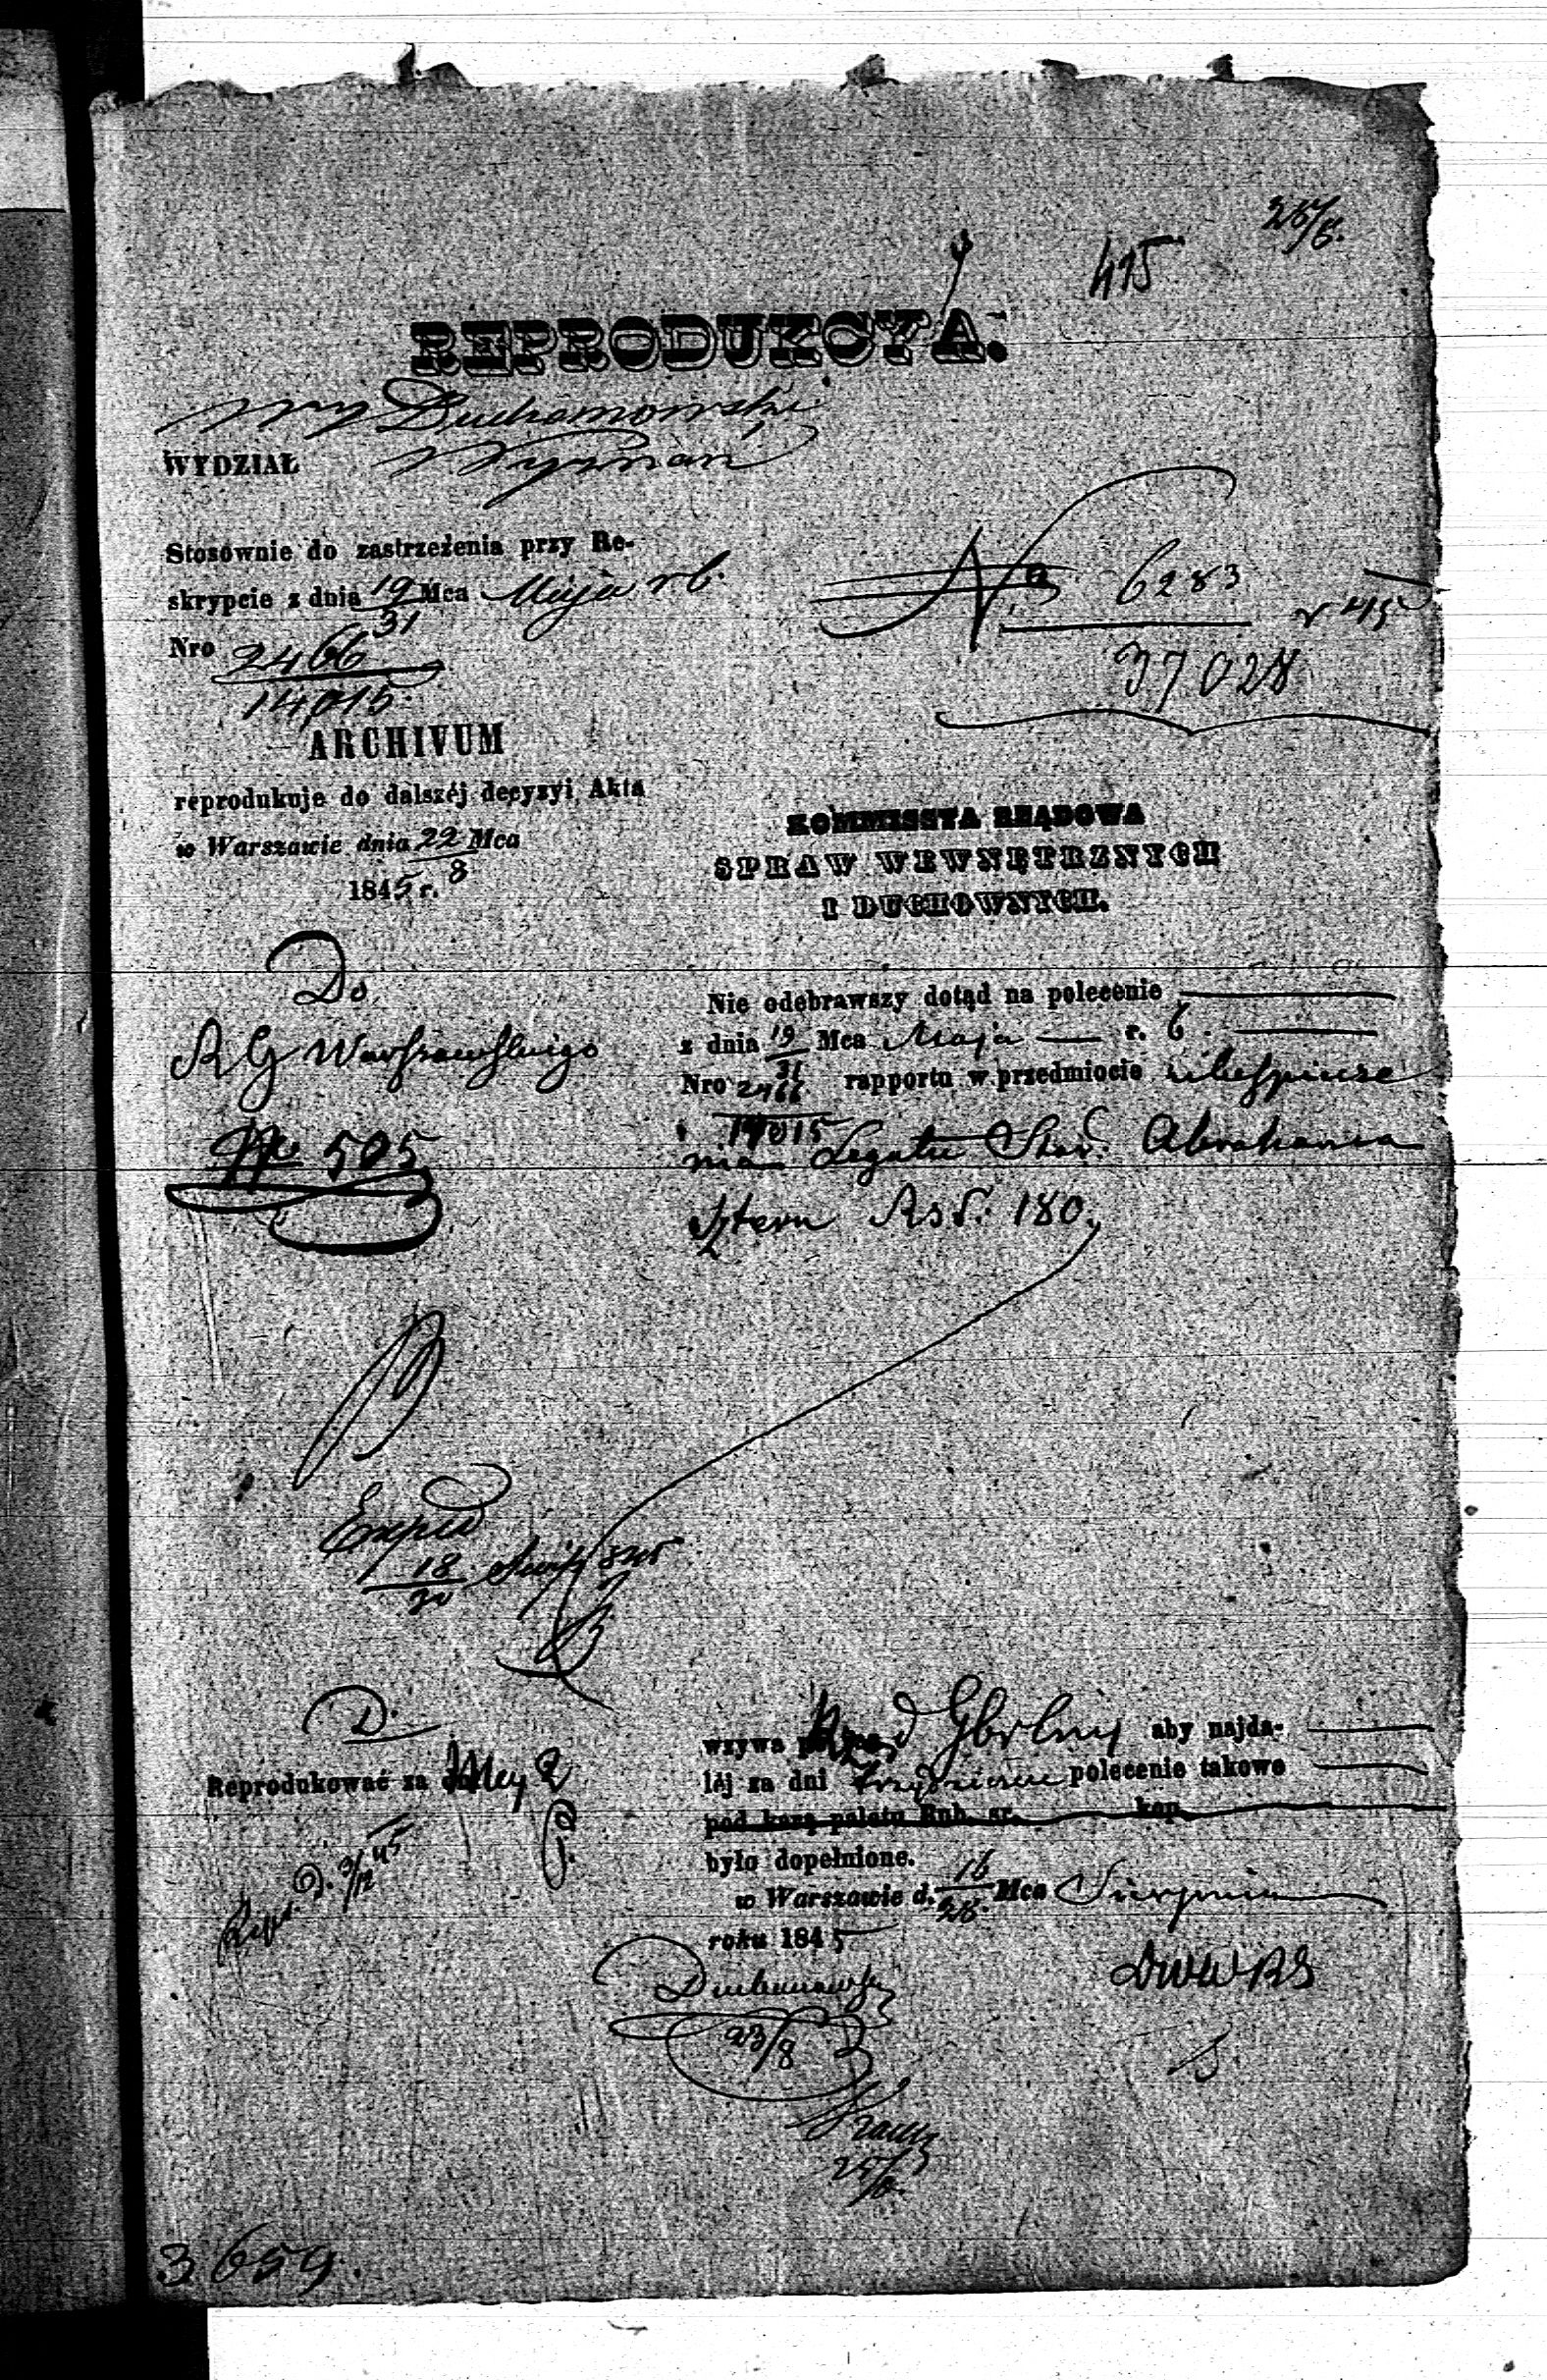 25/8.
415
REPRODUKCYA.
Duchanowski
WYDZIAŁ Wyznań
Stosownie do zastrzeżenia przy Re-
skrypcie z dnia 19/31 Mca Maja r b.
Nro 2466/14,015
ARCHIVUM
reprodukuje do dalszéj decyzyi Akta
w Warszawie dnia 22 Mca
8
1845 r.
Do
R G Warszawskiego
No 505
Exped
18/30 845
D.
Reprodukować za 2
Repr. D. 9/12 45
3659.
No 6283/37028
r 415
KOMMISSYA RZĄDOWA
SPRAW WEWNĘTRZNYCH
I DUCHOWNYCH.
Nie odebrawszy dotąd na polecenie
z dnia 19/31 Mca Maja r. b.
Nro 2466/14015 rapportu w przedmiocie ubezpiecze
nia Legatu Star. Abrahama
Sztern Rs. 180.
wzywa Rząd Gbrlny aby najda-
léj za dni trzydzieści polecenie takowe
pod karą palatu Rub. sr. kop.
było dopełnione.
w Warszawie d. 16/28 Mca Sierpnia
roku 1845
23/8
25/8.